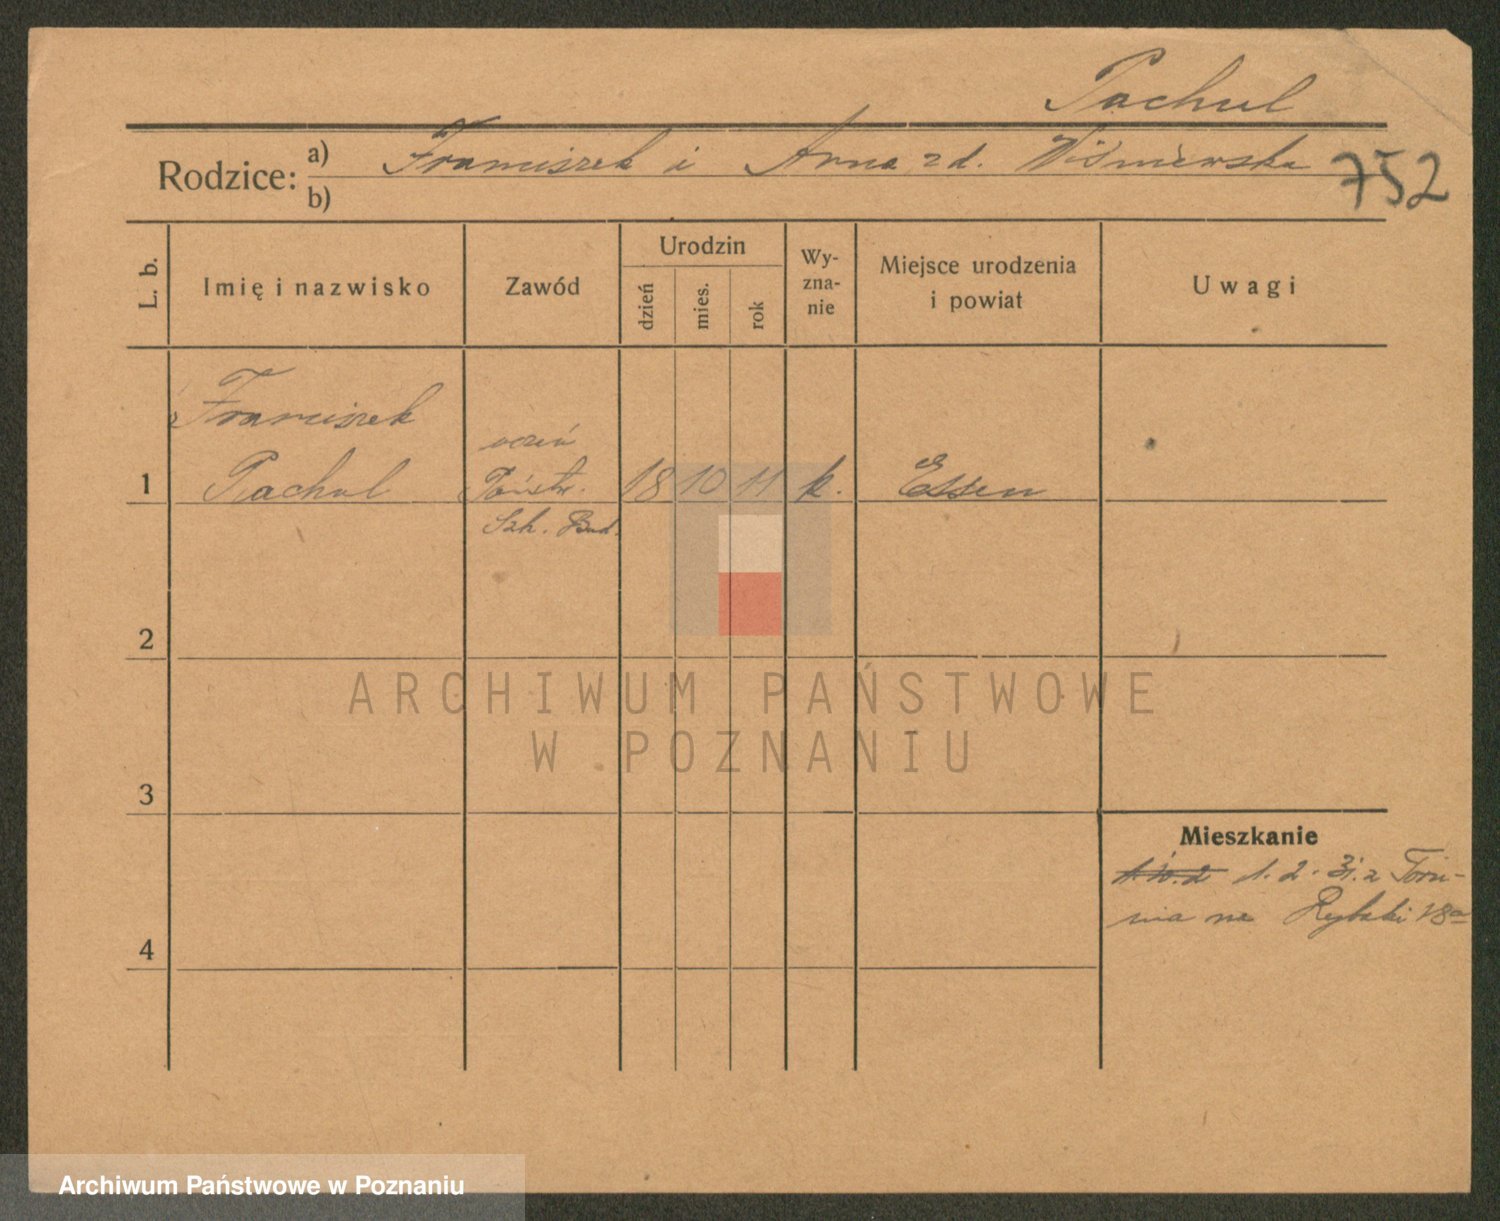 Pachul
Rodzice: a) Franciszek i Anna zd. Wiśniewska
b)
752
L. b.
Imię i nazwisko
Zawód
Urodzin
dzień
mies.
rok
Wy-
zna-
nie
Miejsce urodzenia
i powiat
Uwagi
Franciszek
uczeń
1 Pachul Państw. 18 10 11 k. Essen
Szk. Bud.
2
3
4
Mieszkanie
1. 2. 31. z Toru-
nia na Rybaki 18a
ARCHIWUM PAŃSTWOWE
W POZNANIU
Archiwum Państwowe w Poznaniu